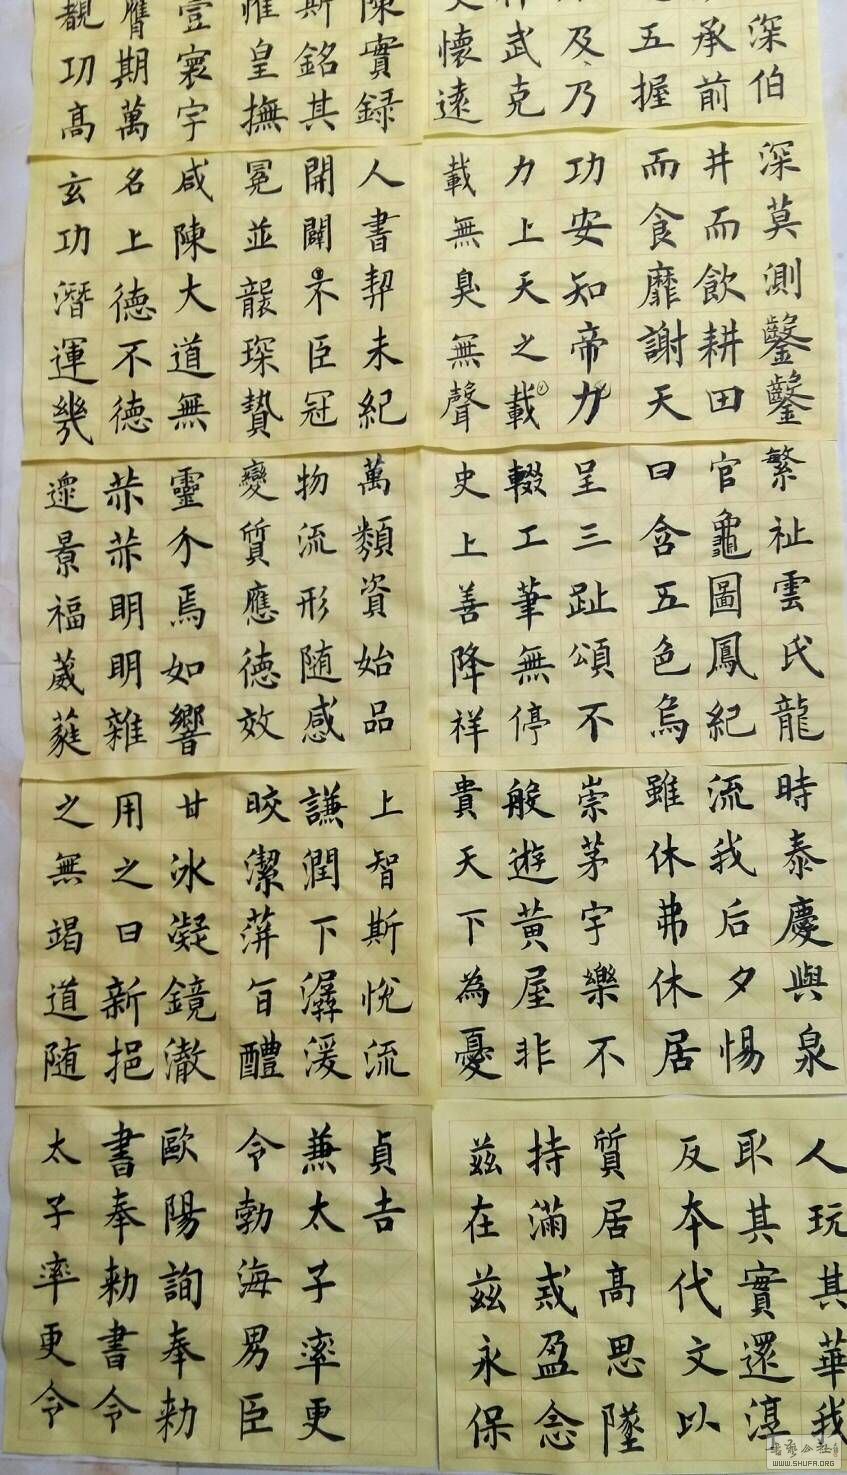 陳實録
斯銘其
惟皇撫
壹寰宇
膺期萬
覩功高
深伯
承前
五握
及乃
武克
懷遠
人書契未紀
開闢不臣冠
冕並襲琛贄
咸陳大道無
名上德不德
玄功潛運幾
深莫測鑿鑿
井而飲耕田
而食靡謝天
功安知帝力
力上天之載
載無臭無聲
萬類資始品
物流形随感
變質應德效
靈介焉如響
赫赫明明雜
遝景福葳蕤
繁祉雲氏龍
官龜圖鳳紀
日含五色烏
呈三趾頌不
輟工筆無停
史上善降祥
上智斯悅流
謙潤下潺湲
皎潔蓱旨醴
甘冰凝鏡澈
用之日新挹
之無竭道随
時泰慶與泉
流我后夕惕
雖休弗休居
崇茅宇樂不
般遊黃屋非
貴天下為憂
人玩其華我
取其實還淳
反本代文以
質居高思墜
持滿戒盈念
茲在茲永保
貞吉
兼太子率更
令勃海男臣
歐陽詢奉勑
書奉勑書令
太子率更令
WWW.SHUFA.ORG